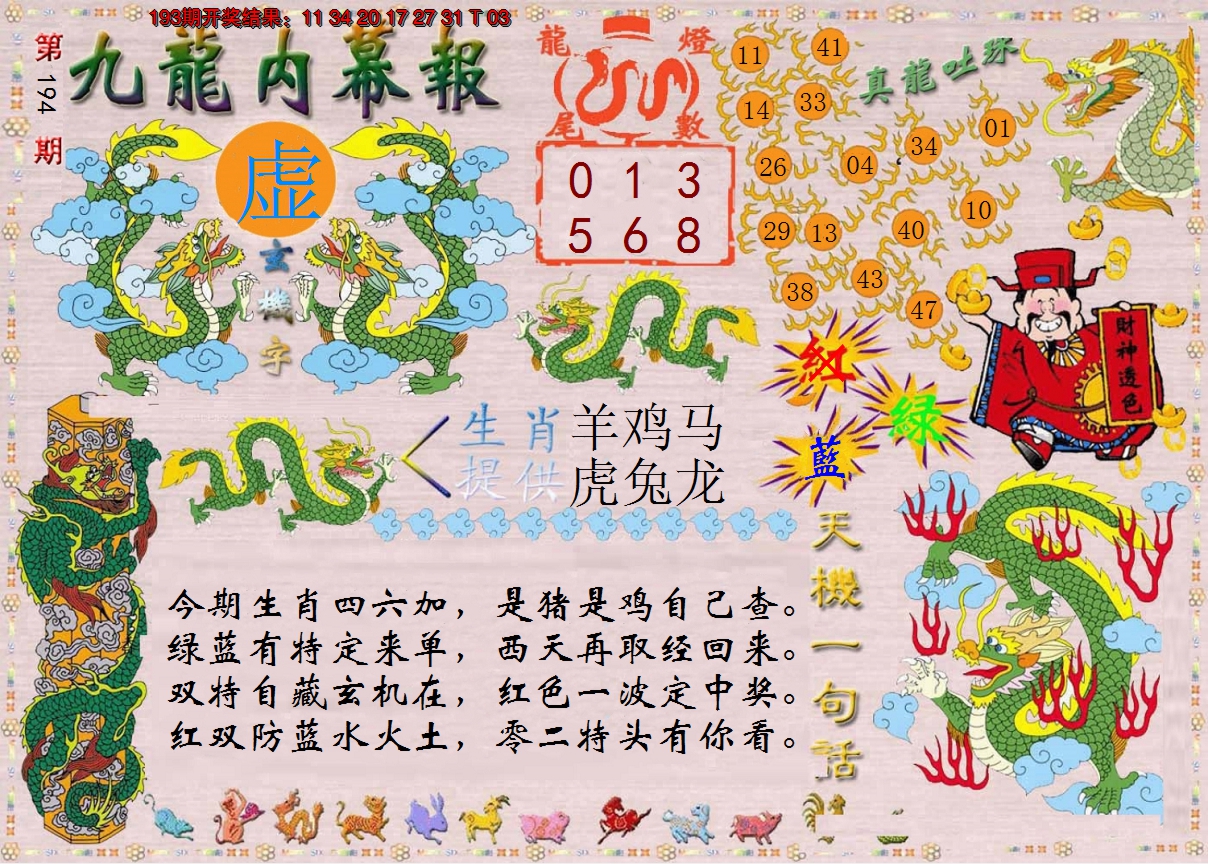 193期开奖结果：11 34 20 17 27 31 T 03
第194期
九龍内幕報
虚
玄機字
龍燈尾數
0 1 3
5 6 8
真龍吐珠
11 41
14 33
26 04 34 01
29 13 40 10
38 43 47
紅
绿
藍
財神透色
生肖提供
羊鸡马
虎兔龙
今期生肖四六加，是猪是鸡自己查。
绿蓝有特定来单，西天再取经回来。
双特自藏玄机在，红色一波定中奖。
红双防蓝水火土，零二特头有你看。
天機一句話